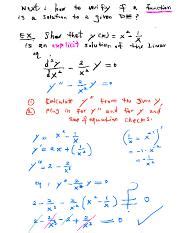 Next: how to verify if a function
is a solution to a given DE?
EX. Show that y(x) = x² - 1/x
is an explicit solution of the linear
eq.
d²y/dx² - 2/x² y = 0
y'' - 2/x² y = 0
① Calculate y'' from the given y.
② Plug in for y'' and for y and
see if equation checks.
y = x² - 1/x
y' = 2x + (1/x²)
y'' = 2 - 2/x³
eq: y'' - 2/x² y = 0
2 - 2/x³ - 2/x² (x² - 1/x) = 0
2 - 2/x³ - 2 + 2/x³ = 0
0 = 0 ✓